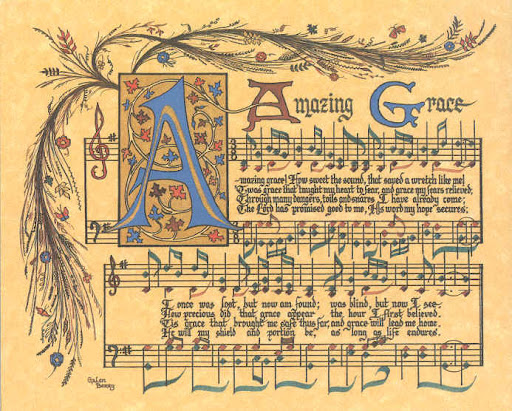 Amazing Grace
Amazing grace! How sweet the sound, that saved a wretch like me!
'Twas grace that taught my heart to fear, and grace my fears relieved;
Through many dangers, toils and snares I have already come;
The Lord has promised good to me, His word my hope secures;
I once was lost, but now am found; was blind, but now I see.
How precious did that grace appear the hour I first believed.
'Tis grace that brought me safe thus far, and grace will lead me home.
He will my shield and portion be, as long as life endures.
Galen
Berry